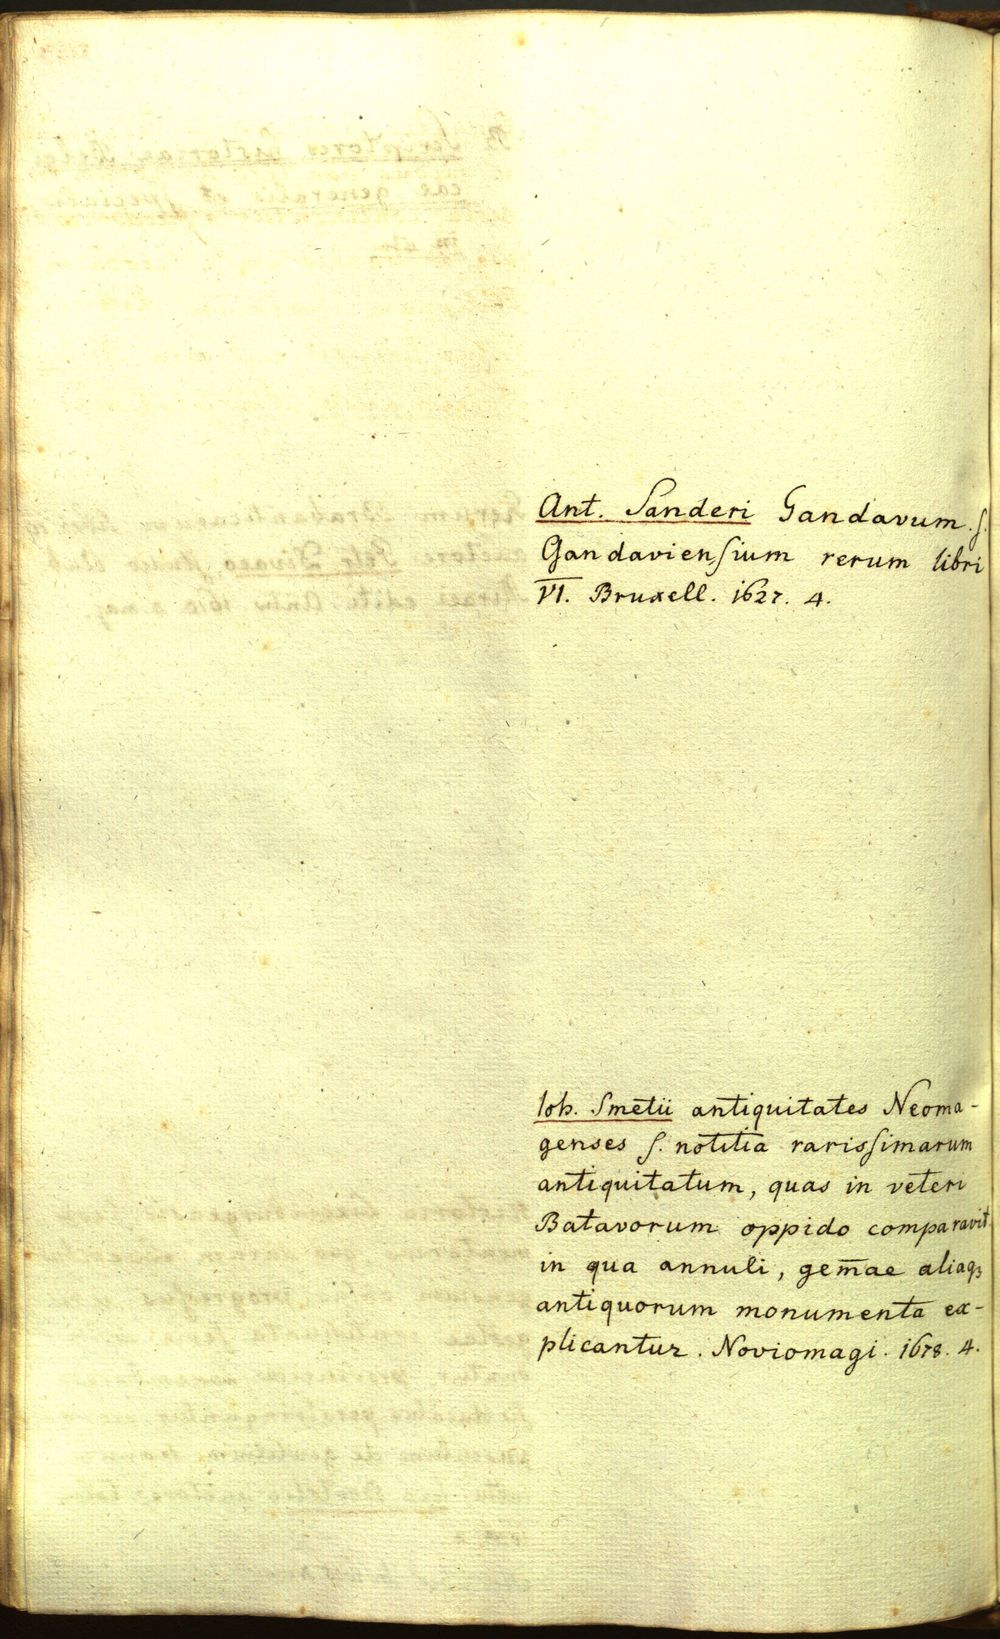 Ant. Sanderi Gandavum. ſ.
Gandavienſium rerum libri
VI. Bruxell. 1627. 4.
Ioh. Smetii antiquitates Neoma-
genses ſ. notitia rarisſimarum
antiquitatum, quas in veteri
Batavorum oppido comparavit
in qua annuli, gem̅ae aliaqꝫ
antiquorum monumenta ex-
plicantur. Noviomagi. 1678. 4.